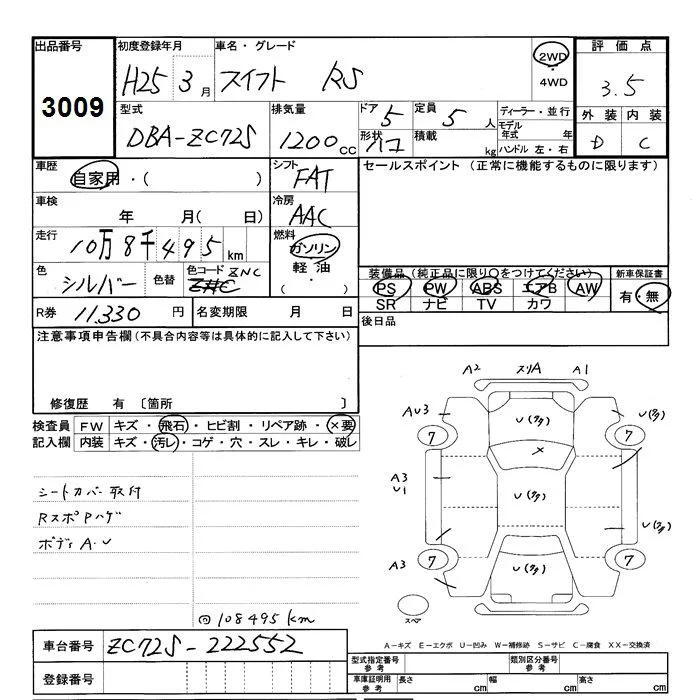 出品番号 初度登録年月 車名・グレード 2WD 評価点
3009 H25 3月 スイフト RS 4WD 3.5
型式 排気量 ドア 5 定員 5人 ディーラー・並行 外装 内装
DBA-ZC72S 1200cc 形状 ハコ 積載 kg モデル年式 年 D C
ハンドル 左・右
車歴 自家用・( ) シフト FAT セールスポイント (正常に機能するものに限ります)
車検 年 月( 日) 冷房 AAC
走行 10万8千495km 燃料 ガソリン
軽油
・( )
色 シルバー 色替 色コード ZNC 装備品(純正品に限り○をつけてください) 新車保証書
PS PW ABS エアB AW 有・無
SR ナビ TV カワ
R券 11,330円 名変期限 月 日 後日品
注意事項申告欄(不具合内容等は具体的に記入して下さい)
修復歴 有 〔箇所 〕
検査員 FW キズ・飛石・ヒビ割・リペア跡・×要
記入欄 内装 キズ・汚レ・コゲ・穴・スレ・キレ・破レ
シートカバー取付
RスポPハゲ
ボディA.U
@108495km
A2 スリA A1
AU3 U(多) U(多)
7 7
×
A3
U1 U(多) U(多)
A3 U(多)
7 7
スペア
A-キズ E-エクボ U-凹み W-補修跡 S-サビ C-腐食 XX-交換済
車台番号 ZC72S-222552
型式指定番号 参考 類別区分番号 参考
登録番号 車庫証明用 参考 長さ cm 幅 cm 高さ cm